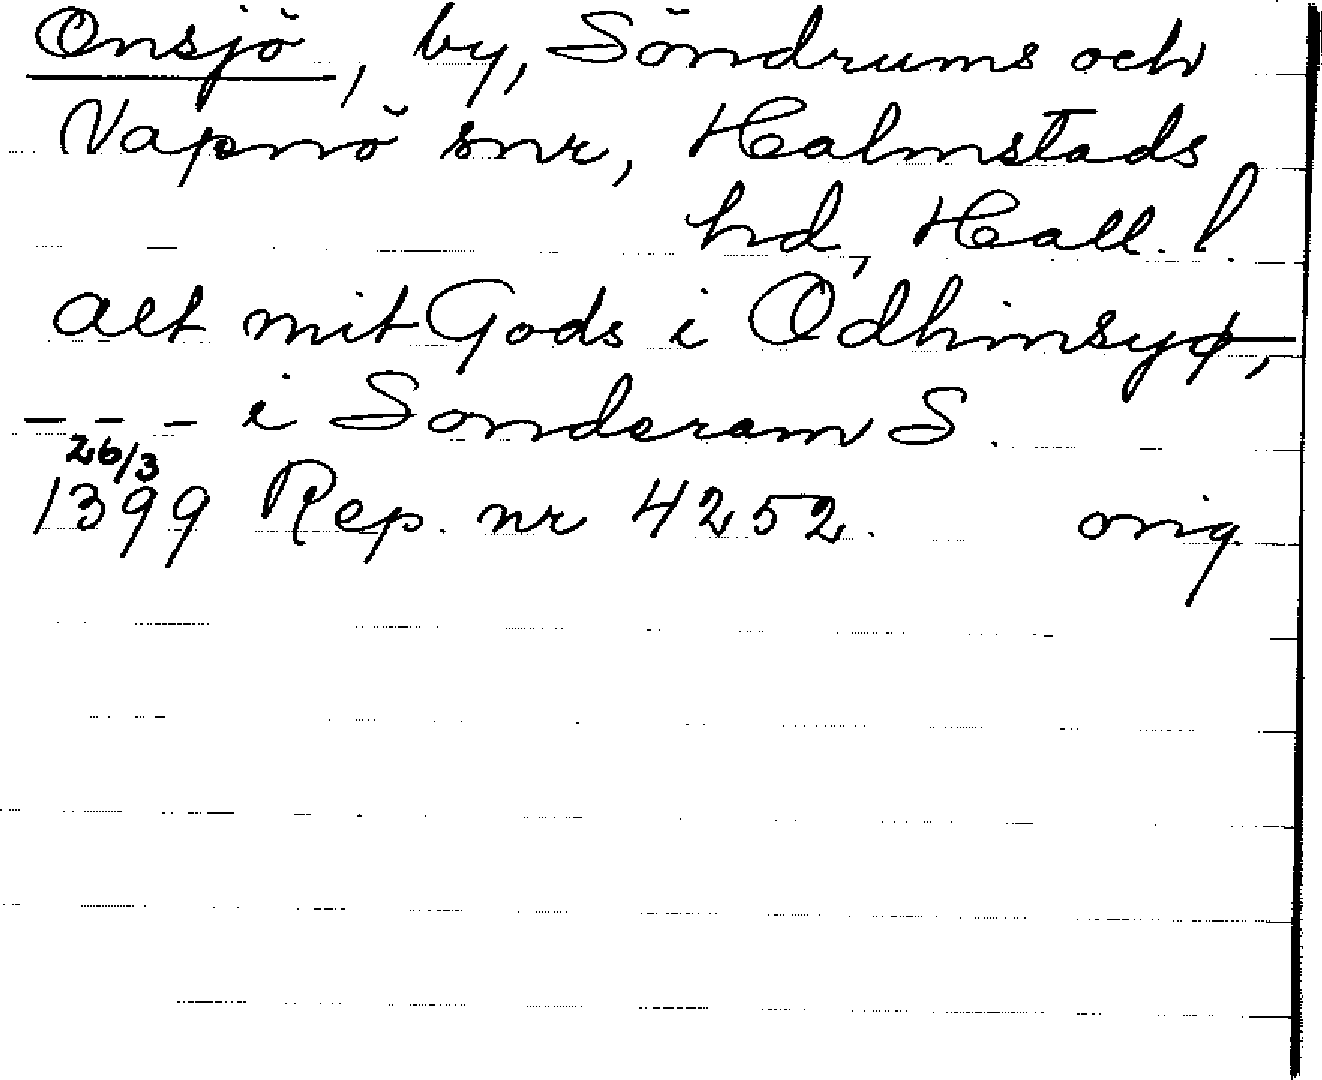 Onsjö, by, Söndrums och
Vapnö snr, Halmstads
hd, Hall. l.
alt mit Gods i Odhinsyø,
– – – i Sonderam S.
26/3
1399 Rep. nr 4252. orig.